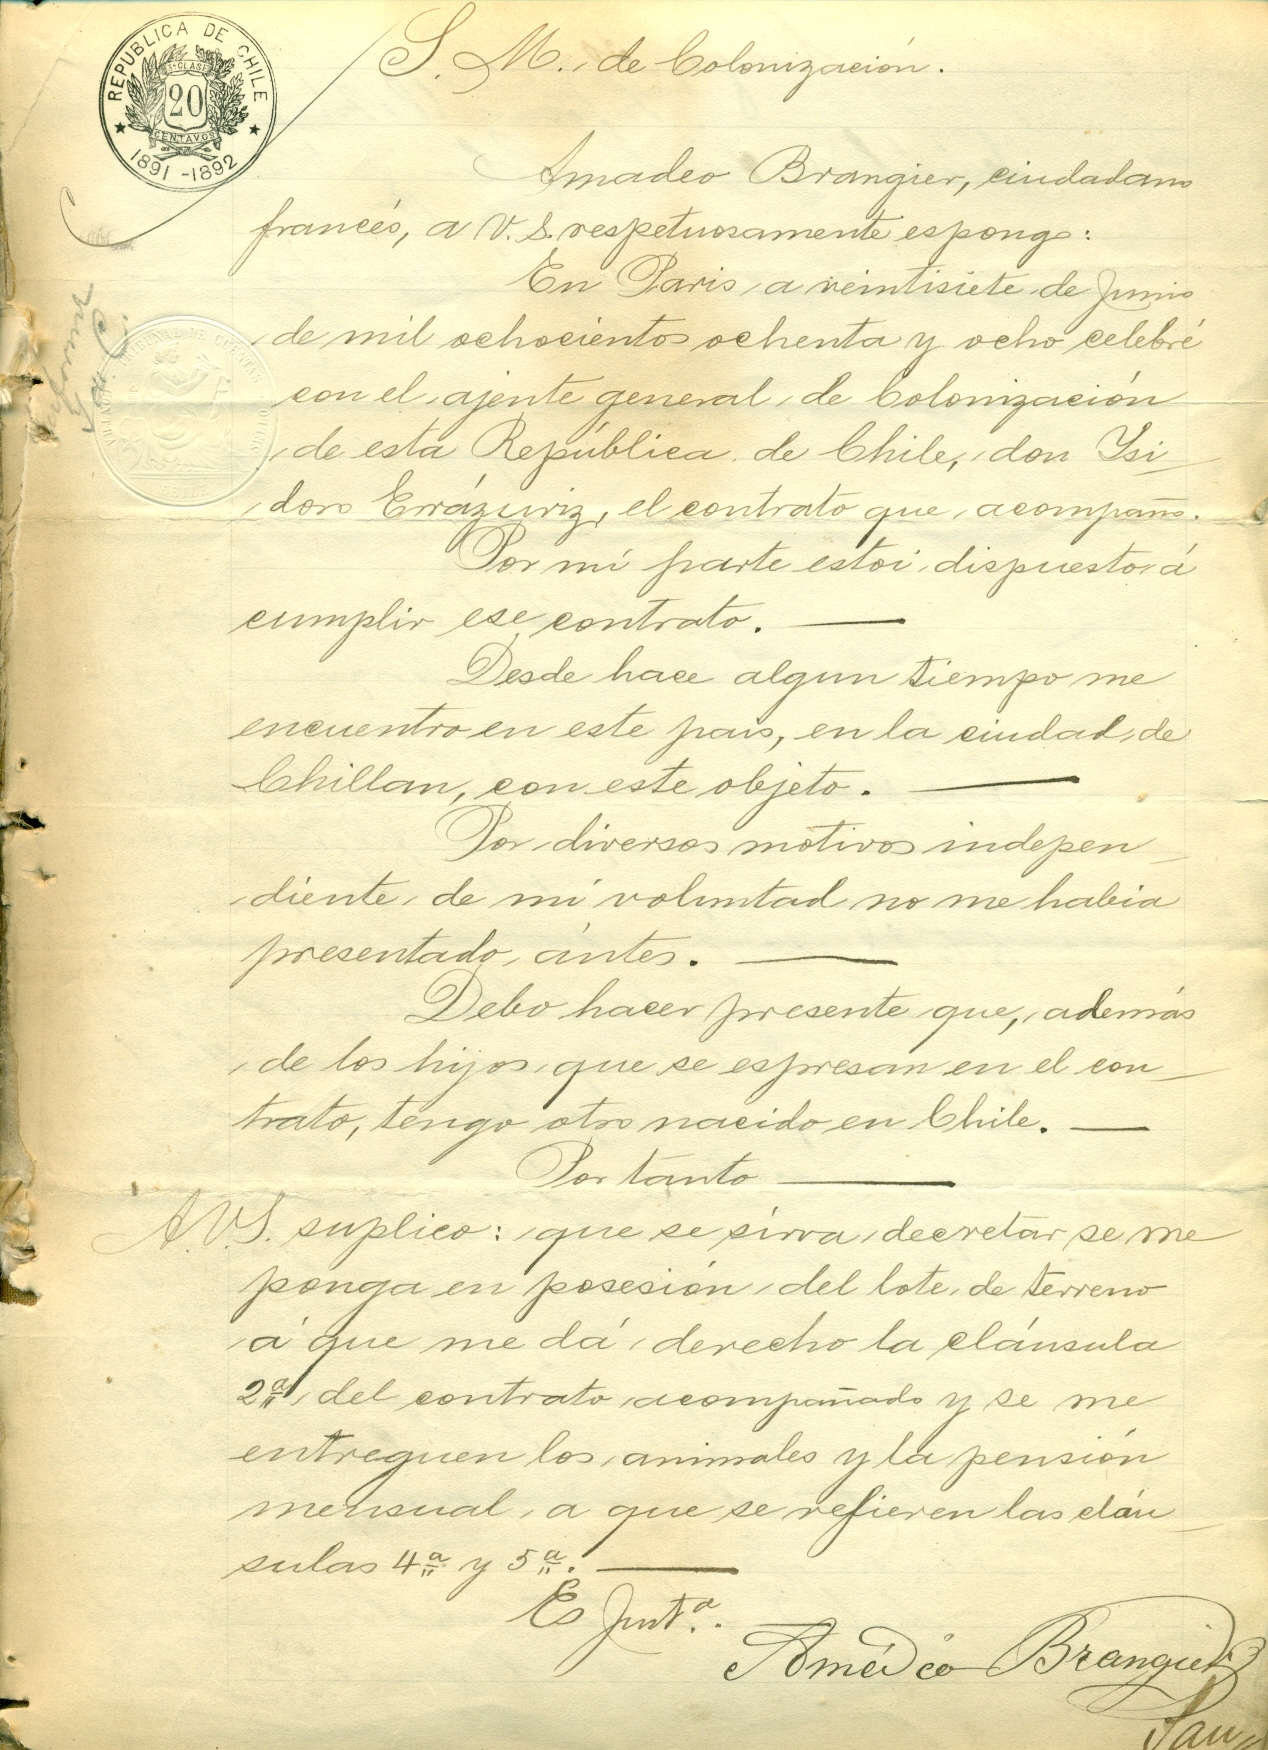 REPUBLICA DE CHILE
3ª CLASE
20
CENTAVOS
1891-1892
S. M. de Colonización.
Amadeo Brangier, ciudadano
francés, a V. S. respetuosamente espongo:
En Paris a veintisiete de Junio
de mil ochocientos ochenta y ocho celebré
con el ajente general de Colonización
de esta República de Chile, don Ysi
doro Errázuriz, el contrato que acompaño.
Por mi parte estoi dispuesto á
cumplir ese contrato. —
Desde hace algun tiempo me
encuentro en este pais, en la ciudad de
Chillan, con este objeto. —
Por diversos motivos indepen_
diente de mi voluntad no me habia
presentado ántes. —
Debo hacer presente que, además
de los hijos que se espresan en el con_
trato, tengo otro nacido en Chile. —
Por tanto —
A. V. S. suplico: que se sirva decretar se me
ponga en posesión del lote de terreno
á que me dá derecho la cláusula
2ª del contrato acompañado y se me
entreguen los animales y la pensión
mensual a que se refieren las cláu_
sulas 4ª y 5ª. —
Es Justª.
Amédéo Brangier